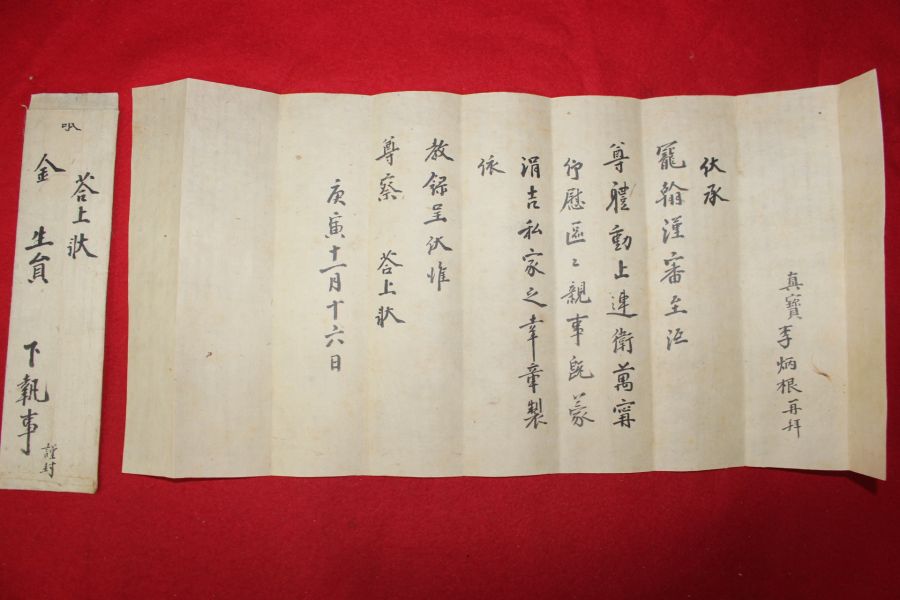 真寶李炳根再拜
伏承
寵翰謹審至沍
尊體動止連衛萬甯
仰慰區〻親事既蒙
涓吉私家之幸章製
依
教錄呈伏惟
尊察 答上狀
庚寅十一月十六日
答上狀
金 生員 下執事
謹封